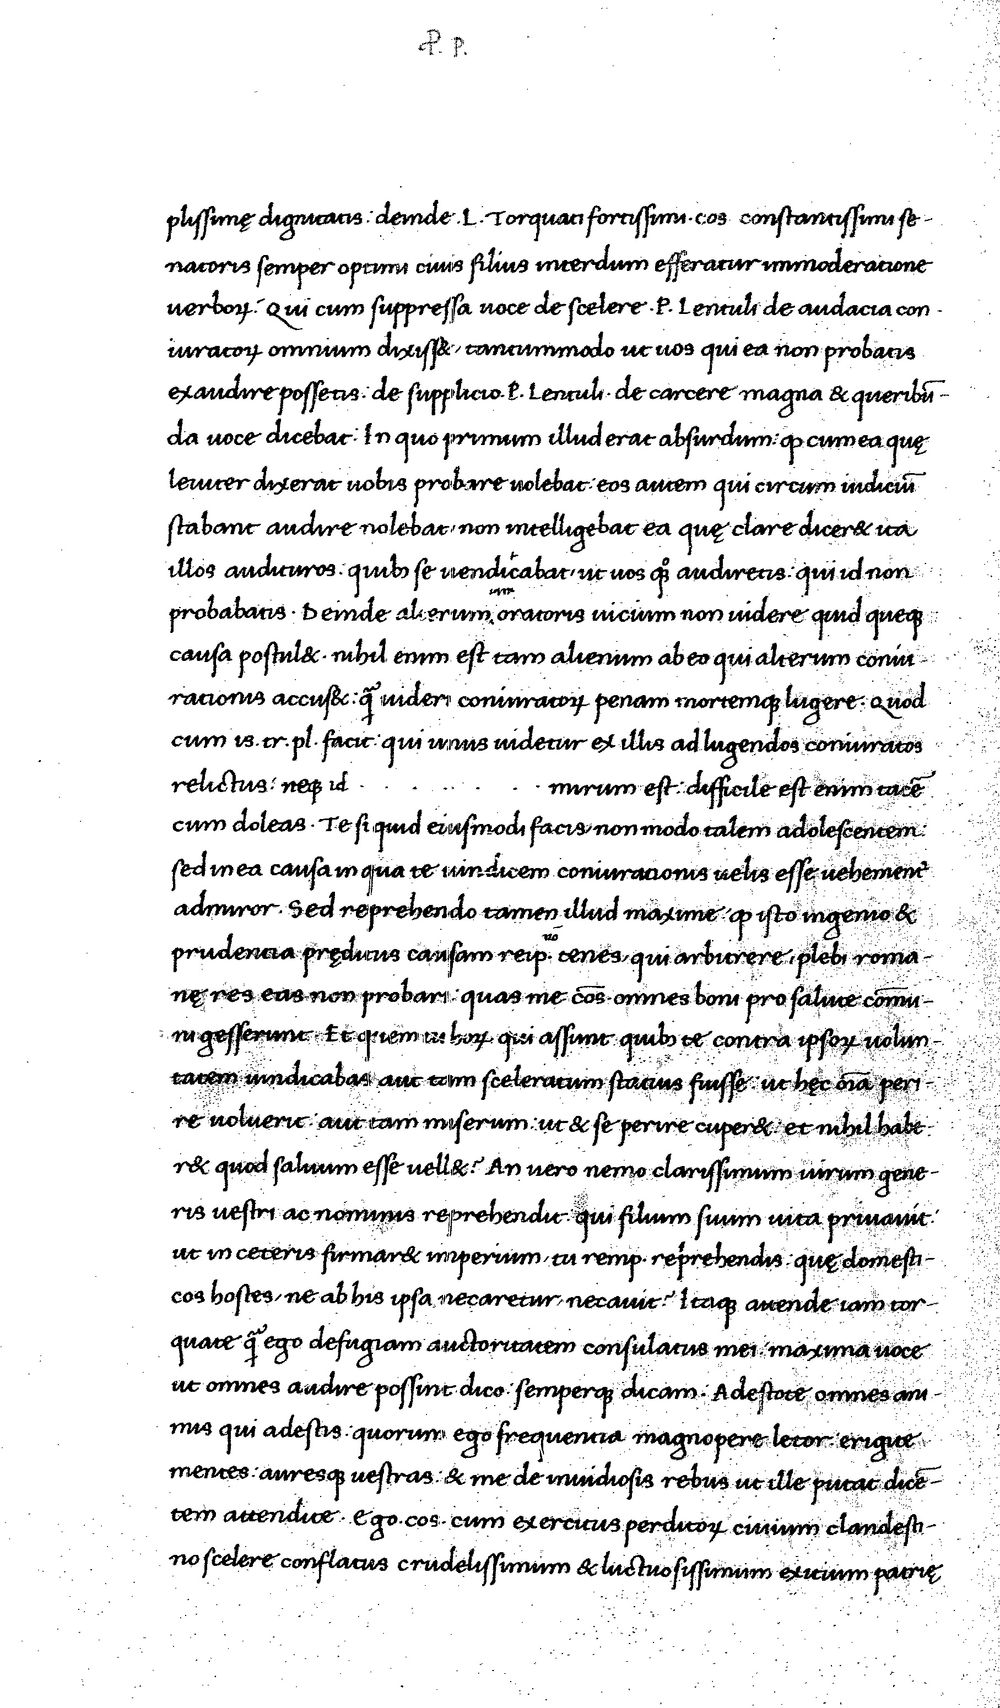 P. P.
plissimę dignitatis: deinde .L. Torquati fortissimi. cos constantissimi se-
natoris semper optimi civis filius interdum efferatur immoderatione
verboꝝ: Qui cum suppressa voce de scelere .P. Lentuli de audacia con-
iuratoꝝ omnium dixiss&, tantummodo ut uos qui ea non probatis
exaudire possetis: de supplicio .P. Lentuli. de carcere magna & queribū-
da uoce dicebat: In quo primum illud erat absurdum: ꝙ cum ea quę
leuiter dixerat uobis probare uolebat: eos autem qui circum iudiciū
stabant audire nolebat, non intelligebat ea quę clare dicer& ita
illos audituros: quibꝫ se uendicabat, ut uos qꝫ audiretis: qui id non
probabatis. Deinde alterum oratoris uicium non uidere quid queqꝫ
causa postul&. nihil enim est tam alienum ab eo qui alterum coniu-
rationis accus&: q̄ uideri coniuratoꝝ penam mortemqꝫ lugere. Quod
cum is. tr. pl. facit: qui unus uidetur ex illis ad lugendos coniuratos
relictus: neqꝫ id . . . . . . . mirum est: difficile est enim tacē
cum doleas. Te si quid eiusmodi facis, non modo talem adolescentem:
sed in ea causa in qua te uindicem coniurationis uelis esse uehement̄
admiror. Sed reprehendo tamen illud maxime: ꝙ isto ingenio &
prudentia pręditus causam reip. nō tenes, qui arbitrere, plebi roma-
nę res eas non probari: quas me cōs omnes boni pro salute cōmu-
ni gesserunt. Et quem tu hoꝝ qui assunt quibꝫ te contra ipsoꝝ uolun-
tatem uindicabas aut tam sceleratum statuis fuisse: ut hęc oīa peri-
re uoluerit: aut tam miserum: ut & se perire cuper&: et nihil habe-
r& quod saluum esse uell&? An uero nemo clarissimum uirum gene-
ris uestri ac nominis reprehendit: qui filium suum uita priuauit:
ut in ceteris firmar& imperium, tu remp. reprehendis: quę domesti-
cos hostes, ne ab his ipsa necaretur, necauit? Itaqꝫ attende iam tor-
quate q̄ ego defugiam auctoritatem consulatus mei: maxima uoce
ut omnes audire possint dico: semperqꝫ dicam. Adestote omnes ani-
mis qui adestis: quorum ego frequentia magnopere letor: erigite
mentes: auresqꝫ uestras: & me de inuidiosis rebus ut ille putat dicē-
tem attendite. Ego. cos. cum exercitus perditoꝝ ciuium clandesti-
no scelere conflatus crudelissimum & luctuosissimum exitium patrię